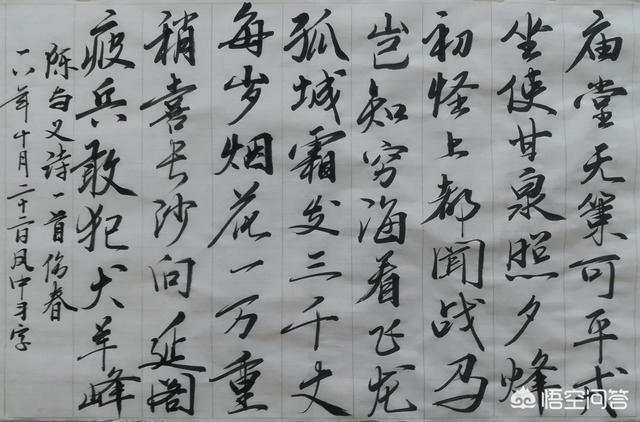 庙堂无策可平戎
坐使甘泉照夕烽
初怪上都闻战马
岂知穷海看飞龙
孤城霜发三千丈
每岁烟花一万重
稍喜长沙向延阁
疲兵敢犯犬羊峰
陈与义诗一首伤春
一八年十月二十二日风中习字
悟空问答